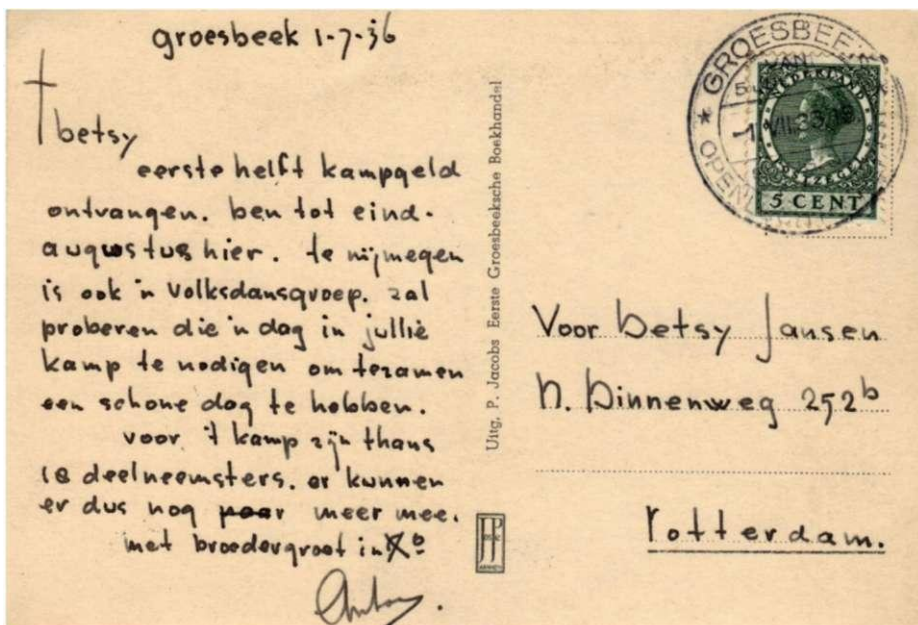 groesbeek 1-7-'36
betsy
eerste helft kampgeld
ontvangen. ben tot eind-
augustus hier. te nijmegen
is ook 'n volksdansgroep. zal
proberen die 'n dag in jullie
kamp te nodigen om tezamen
een schone dag te hebben.
voor 't kamp zijn thans
18 deelneemsters. er kunnen
er dus nog meer mee.
met broedergroet in
Anton.
Uitg. P. Jacobs Eerste Groesbeeksche Boekhandel
GROESBEEK
VAN
NEDERLAND
POSTZEGEL
5 CENT
Voor betsy Jansen
N. Binnenweg 252b
rotterdam.